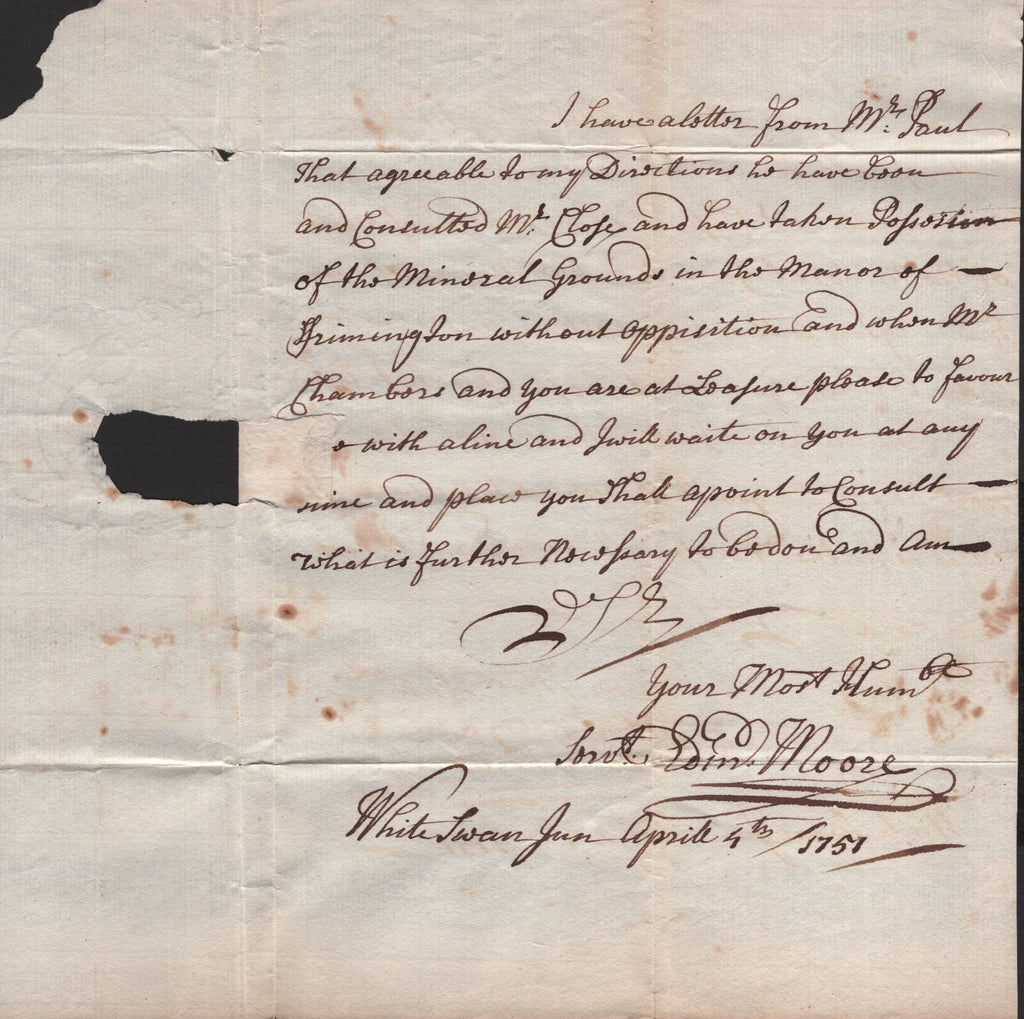 I have a letter from Mr: Paul
That agreeable to my Directions he have been
and Consulted Mr. Close and have taken Possesion
of the Mineral Grounds in the Manor of
Brimington without oppisition and when Mr
Chambers and you are at Leasure please to favour
e with a line and I will waite on you at any
ime and place you Shall apoint to Consult
what is further Necessary to be don and Am
Sr
Your Most Humble
Servt. Edm. Moore
White Swan Inn Aprill 4th / 1751